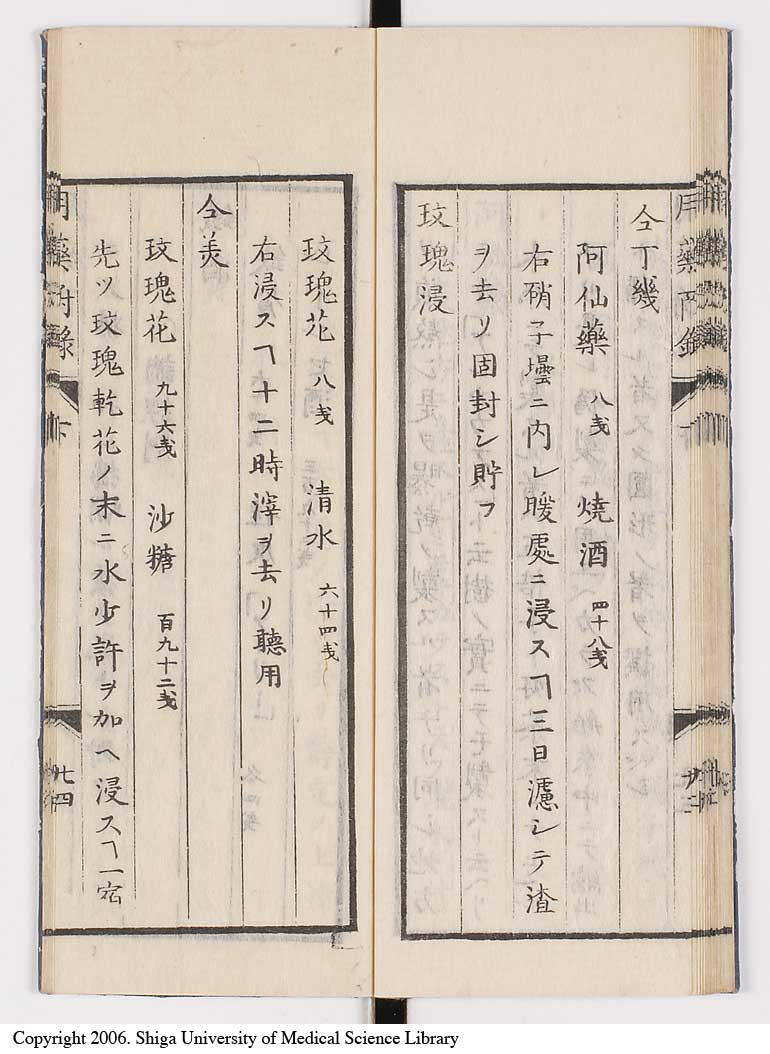 仝丁幾
阿仙藥 八戔 燒酒 四十八戔
右硝子壜ニ内レ暖處ニ浸スヿ三日濾シテ渣
ヲ去リ固封シ貯フ
玫瑰浸
玫瑰花 八戔 清水 六十四戔
右浸スヿ十二時滓ヲ去リ聽用
仝羙
玫瑰花 九十六戔 沙糖 百九十二戔
先ツ玫瑰乾花ノ末ニ水少許ヲ加ヘ浸スヿ一宓
用藥附錄 下 廿四
Copyright 2006. Shiga University of Medical Science Library